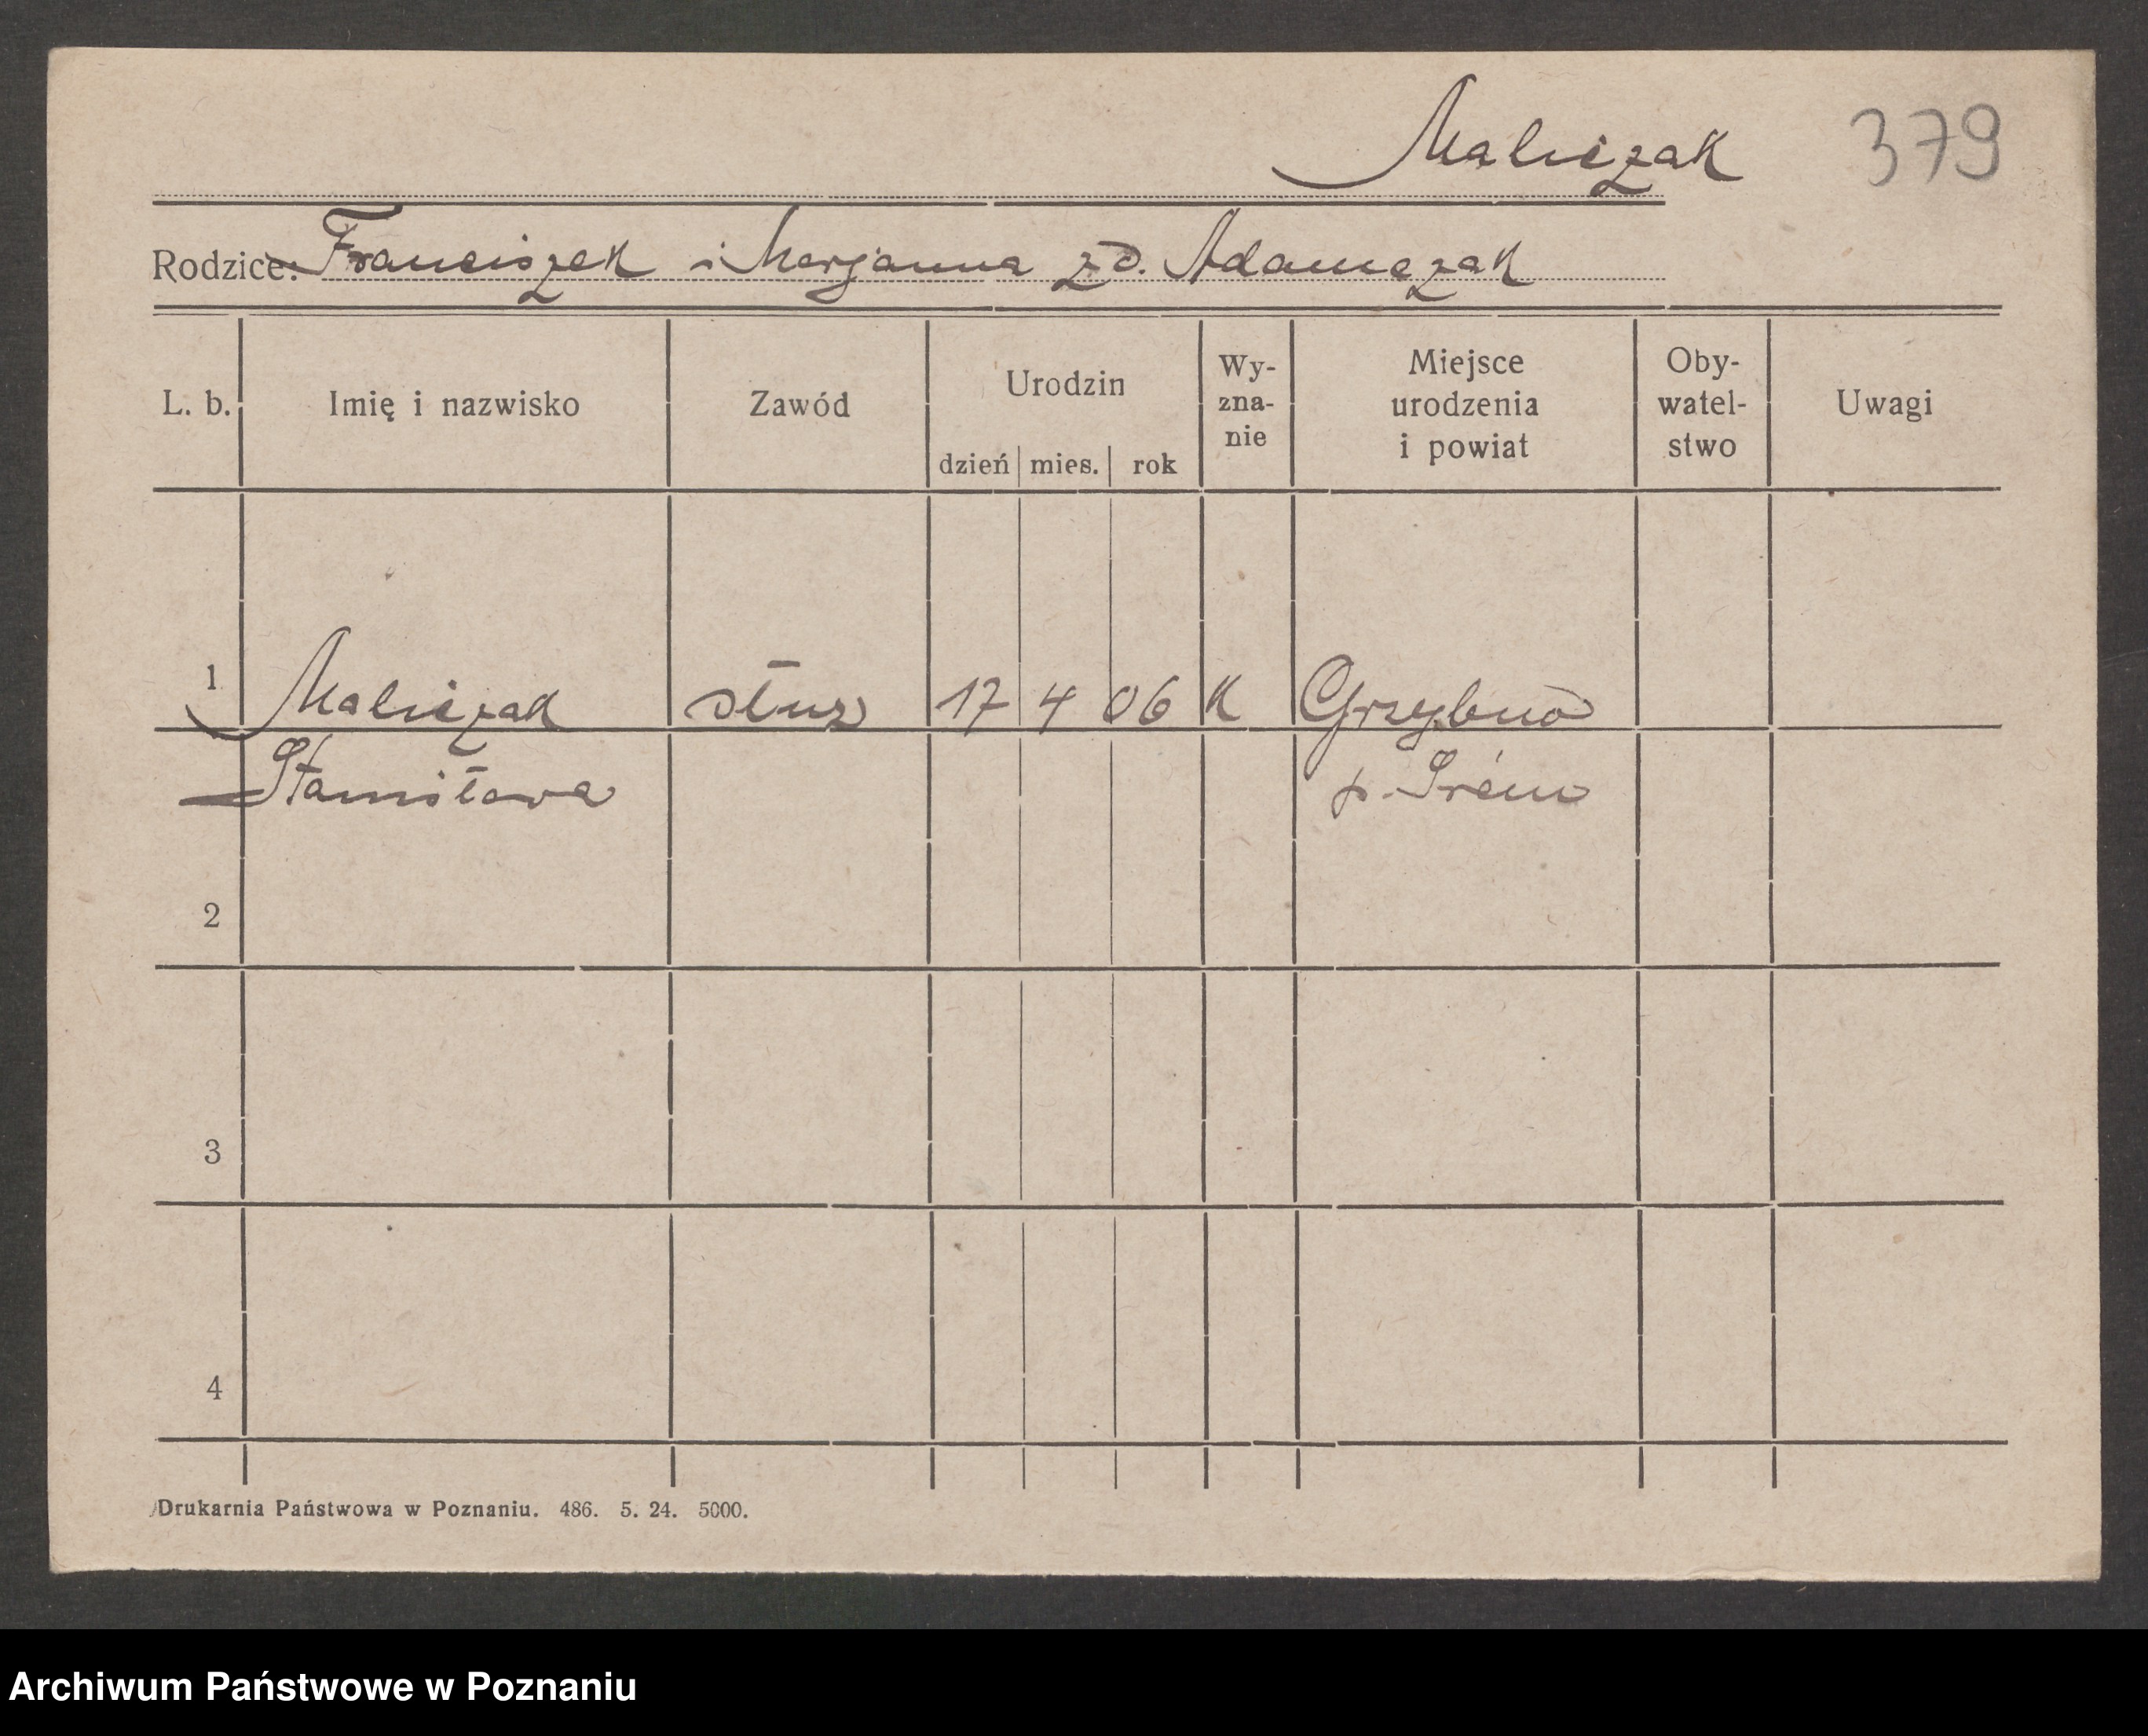 Maliczak 379
Rodzice: Franciszek i Marjanna zd. Adamczak
L. b. Imię i nazwisko Zawód Urodzin dzień mies. rok Wy-zna-nie Miejsce urodzenia i powiat Oby-watel-stwo Uwagi
1 Maliczak służ 17 4 06 K Grzybno
Stanisława p. Śrem
2
3
4
Drukarnia Państwowa w Poznaniu. 486. 5. 24. 5000.
Archiwum Państwowe w Poznaniu